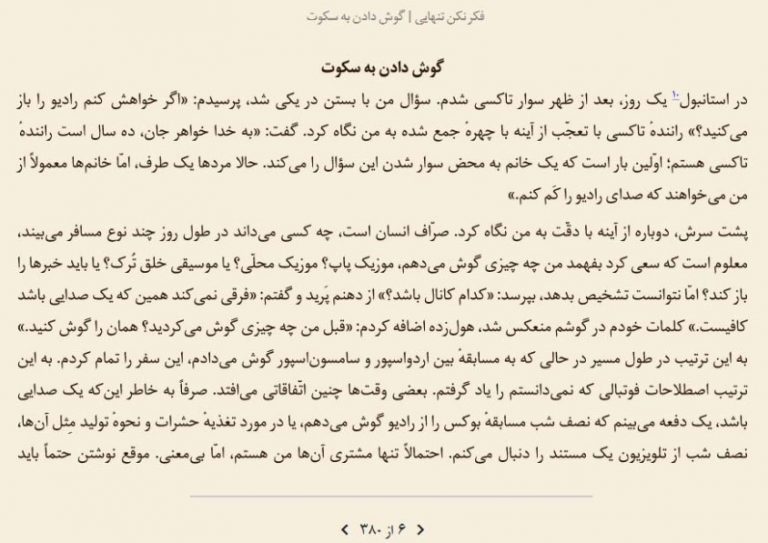 فکر نکن تنهایی | گوش دادن به سکوت
گوش دادن به سکوت
در استانبول۱۰ یک روز، بعد از ظهر سوار تاکسی شدم. سؤال من با بستن در یکی شد، پرسیدم: «اگر خواهش کنم رادیو را باز
می‌کنید؟» رانندهٔ تاکسی با تعجّب از آینه با چهرهٔ جمع شده به من نگاه کرد. گفت: «به خدا خواهر جان، ده سال است رانندهٔ
تاکسی هستم؛ اوّلین بار است که یک خانم به محض سوار شدن این سؤال را می‌کند. حالا مردها یک طرف، امّا خانم‌ها معمولاً از
من می‌خواهند که صدای رادیو را کَم کنم.»
پشت سرش، دوباره از آینه با دقّت به من نگاه کرد. صرّاف انسان است، چه کسی می‌داند در طول روز چند نوع مسافر می‌بیند،
معلوم است که سعی کرد بفهمد من چه چیزی گوش می‌دهم، موزیک پاپ؟ موزیک محلّی؟ یا موسیقی خلق تُرک؟ یا باید خبرها را
باز کند؟ امّا نتوانست تشخیص بدهد، بپرسد: «کدام کانال باشد؟» از دهنم پَرید و گفتم: «فرقی نمی‌کند همین که یک صدایی باشد
کافیست.» کلمات خودم در گوشم منعکس شد، هول‌زده اضافه کردم: «قبل من چه چیزی گوش می‌کردید؟ همان را گوش کنید.»
به این ترتیب در طول مسیر در حالی که به مسابقهٔ بین اردواسپور و سامسون‌اسپور گوش می‌دادم، این سفر را تمام کردم. به این
ترتیب اصطلاحات فوتبالی که نمی‌دانستم را یاد گرفتم. بعضی وقت‌ها چنین اتّفاقاتی می‌افتد. صرفاً به خاطر این‌که یک صدایی
باشد، یک دفعه می‌بینم که نصف شب مسابقهٔ بوکس را از رادیو گوش می‌دهم، یا در مورد تغذیهٔ حشرات و نحوهٔ تولید مِثل آن‌ها،
نصف شب از تلویزیون یک مستند را دنبال می‌کنم. احتمالاً تنها مشتری آن‌ها من هستم، امّا بی‌معنی. موقع نوشتن حتماً باید
۶ از ۳۸۰